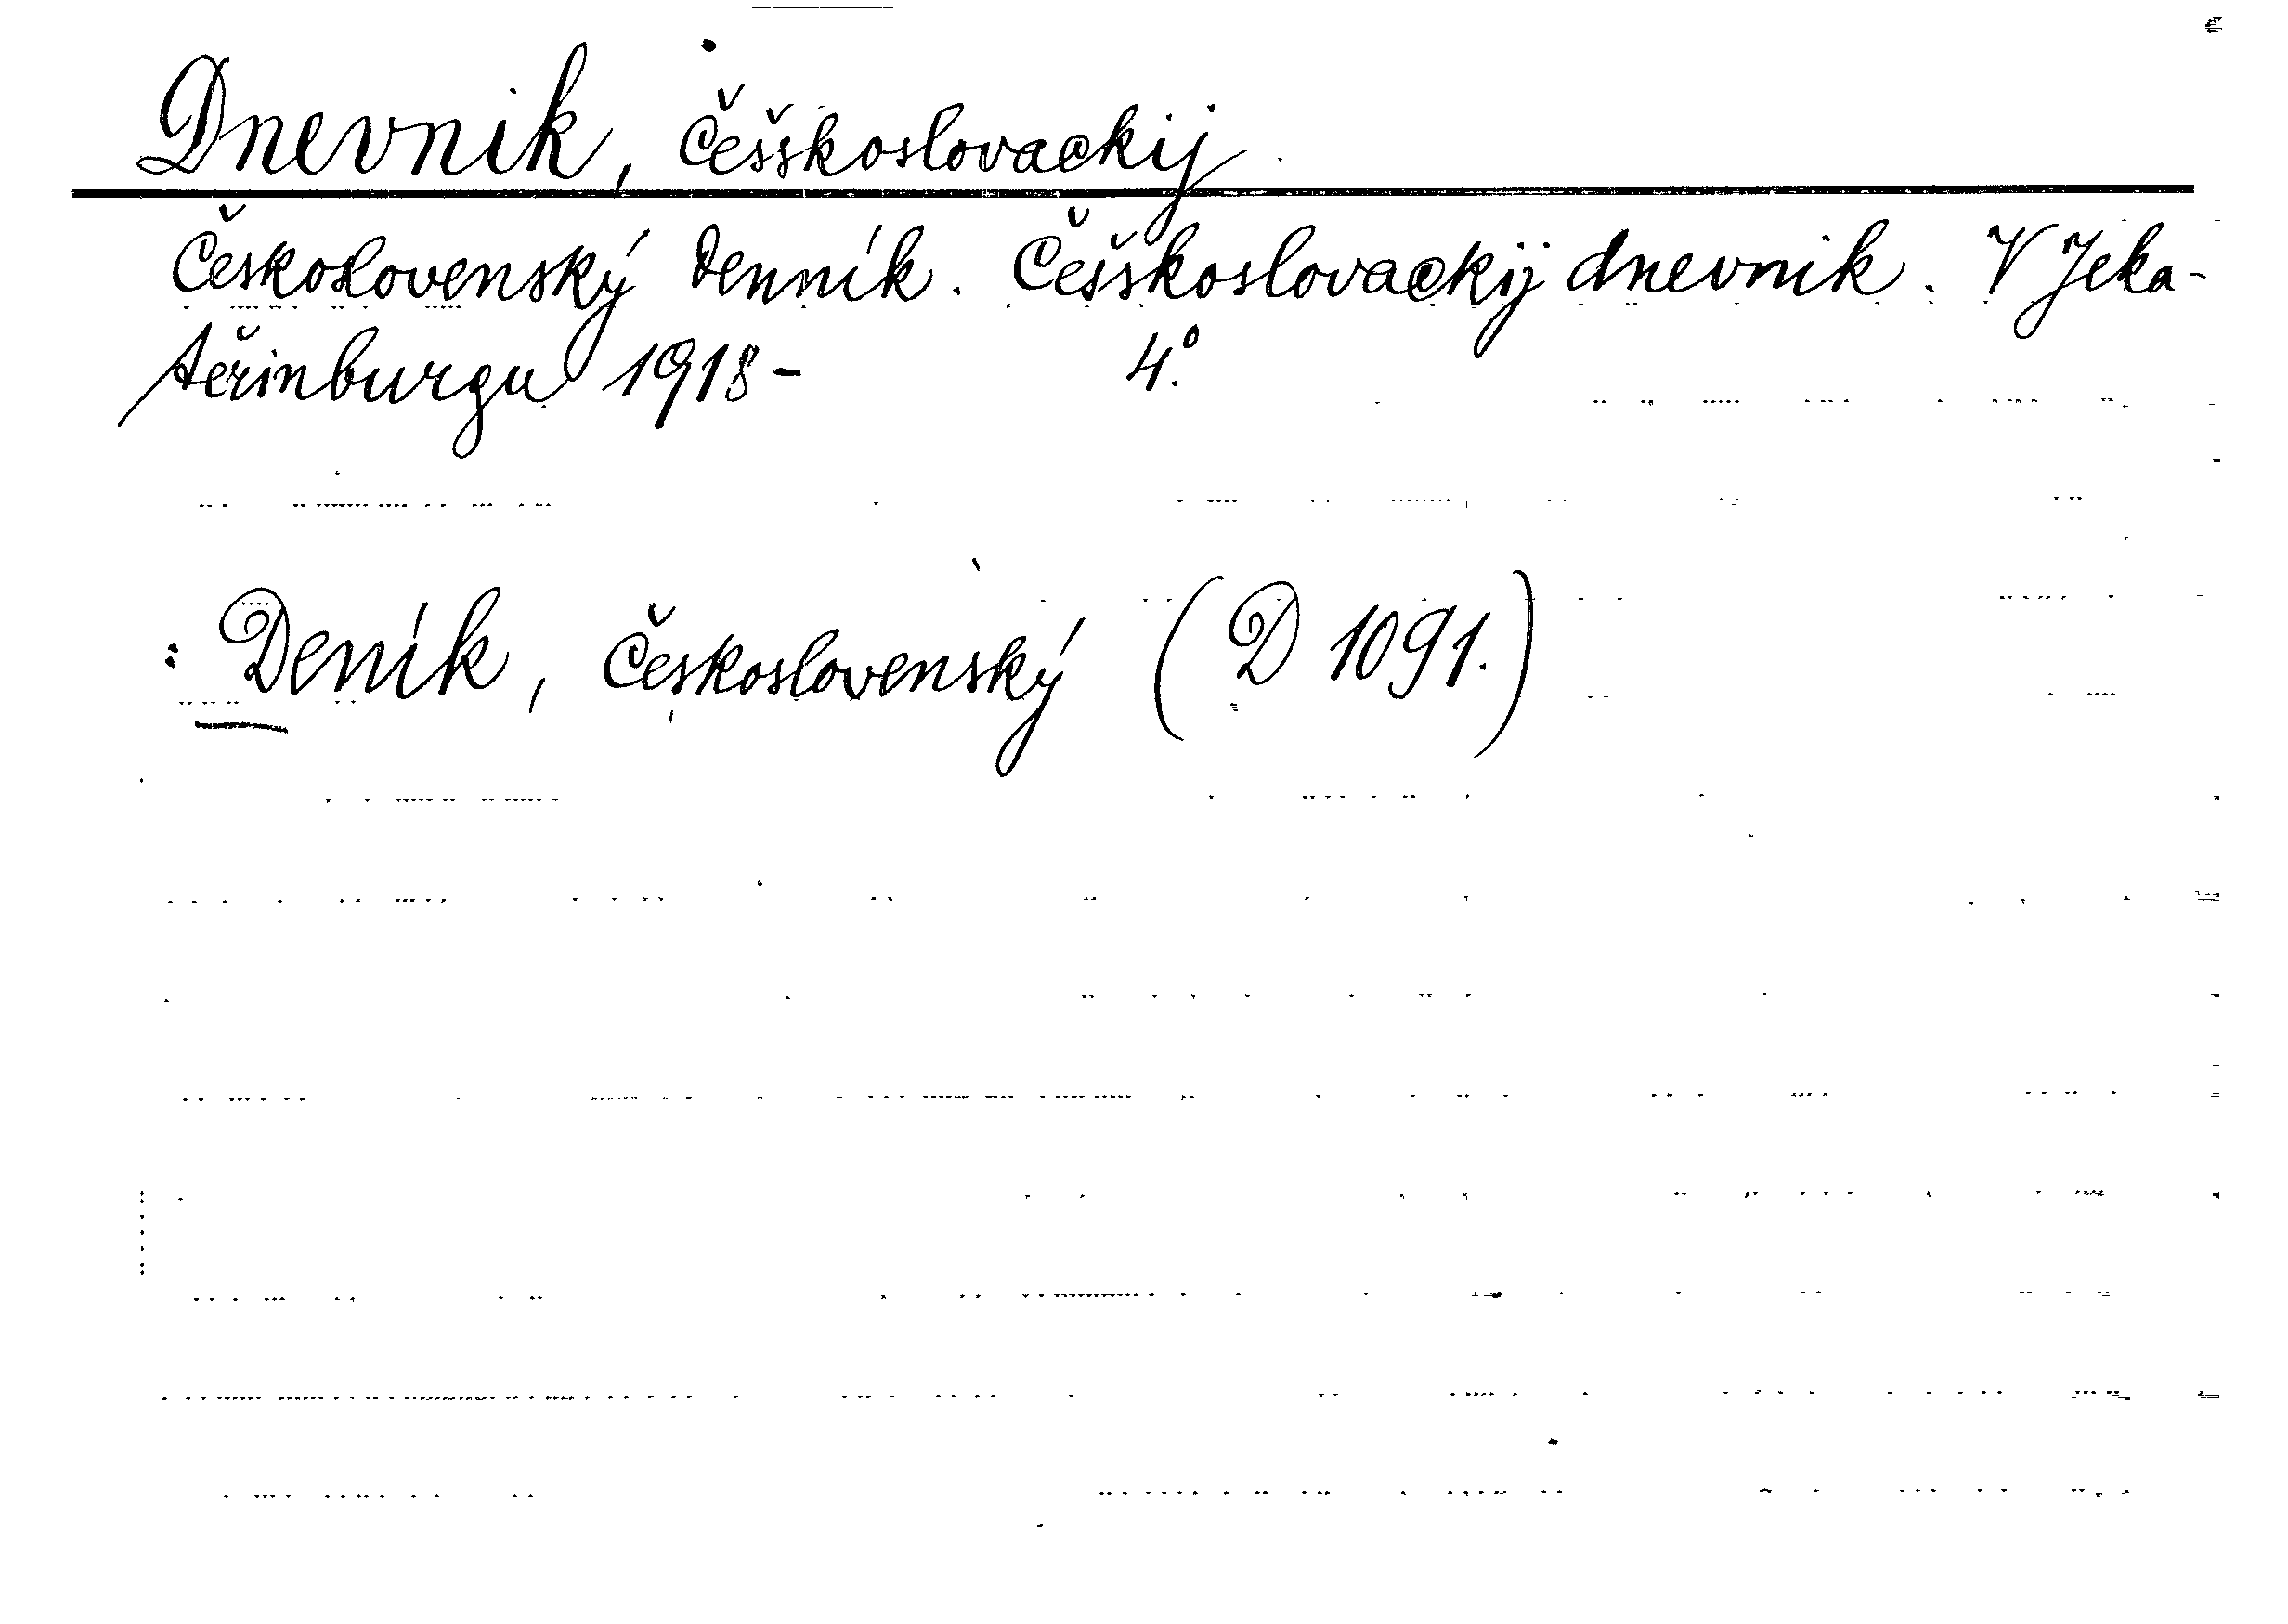 Dnevnik, Češskoslovackij
Československý Denník. Češskoslovackij dnevnik. V Jeka-
teřinburgu 1918- 4.°
: Deník, Československý (D 1091.)